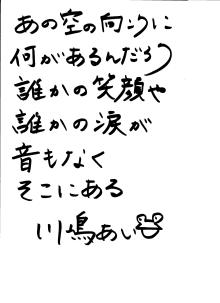 あの空の向こうに
何があるんだろう
誰かの笑顔や
誰かの涙が
音もなく
そこにある
川嶋あい